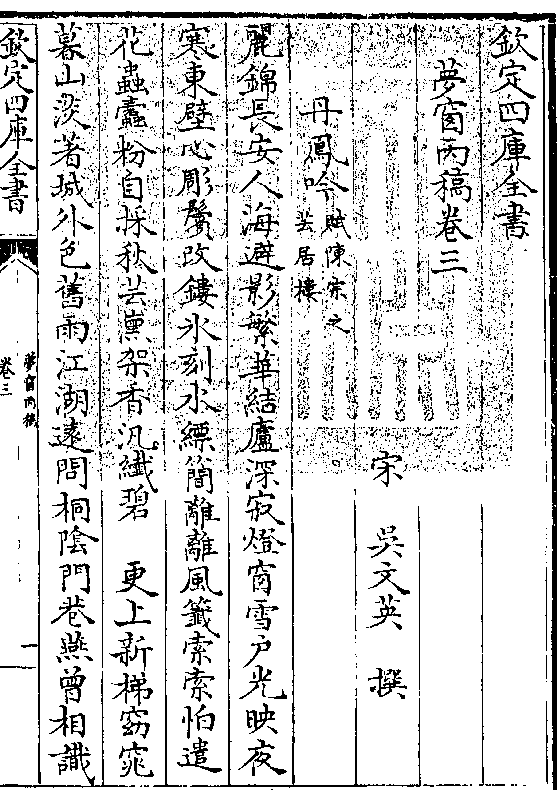 欽定四庫全書
夢窗丙稿卷三
宋　吳文英　撰
丹鳳吟賦陳宗之芸居樓
麗錦長安人海避影繁華結廬深寂燈窗雪户光映夜
寒東壁心彫鬢改鏤氷刻水縹簡離離風籤索索怕遣
花蟲蠹粉自採秋芸熏架香汎纖碧　更上新梯窈窕
暮山淡著城外色舊雨江湖遠問桐陰門巷燕曾相識
欽定四庫全書
夢窗丙稿
卷三
一